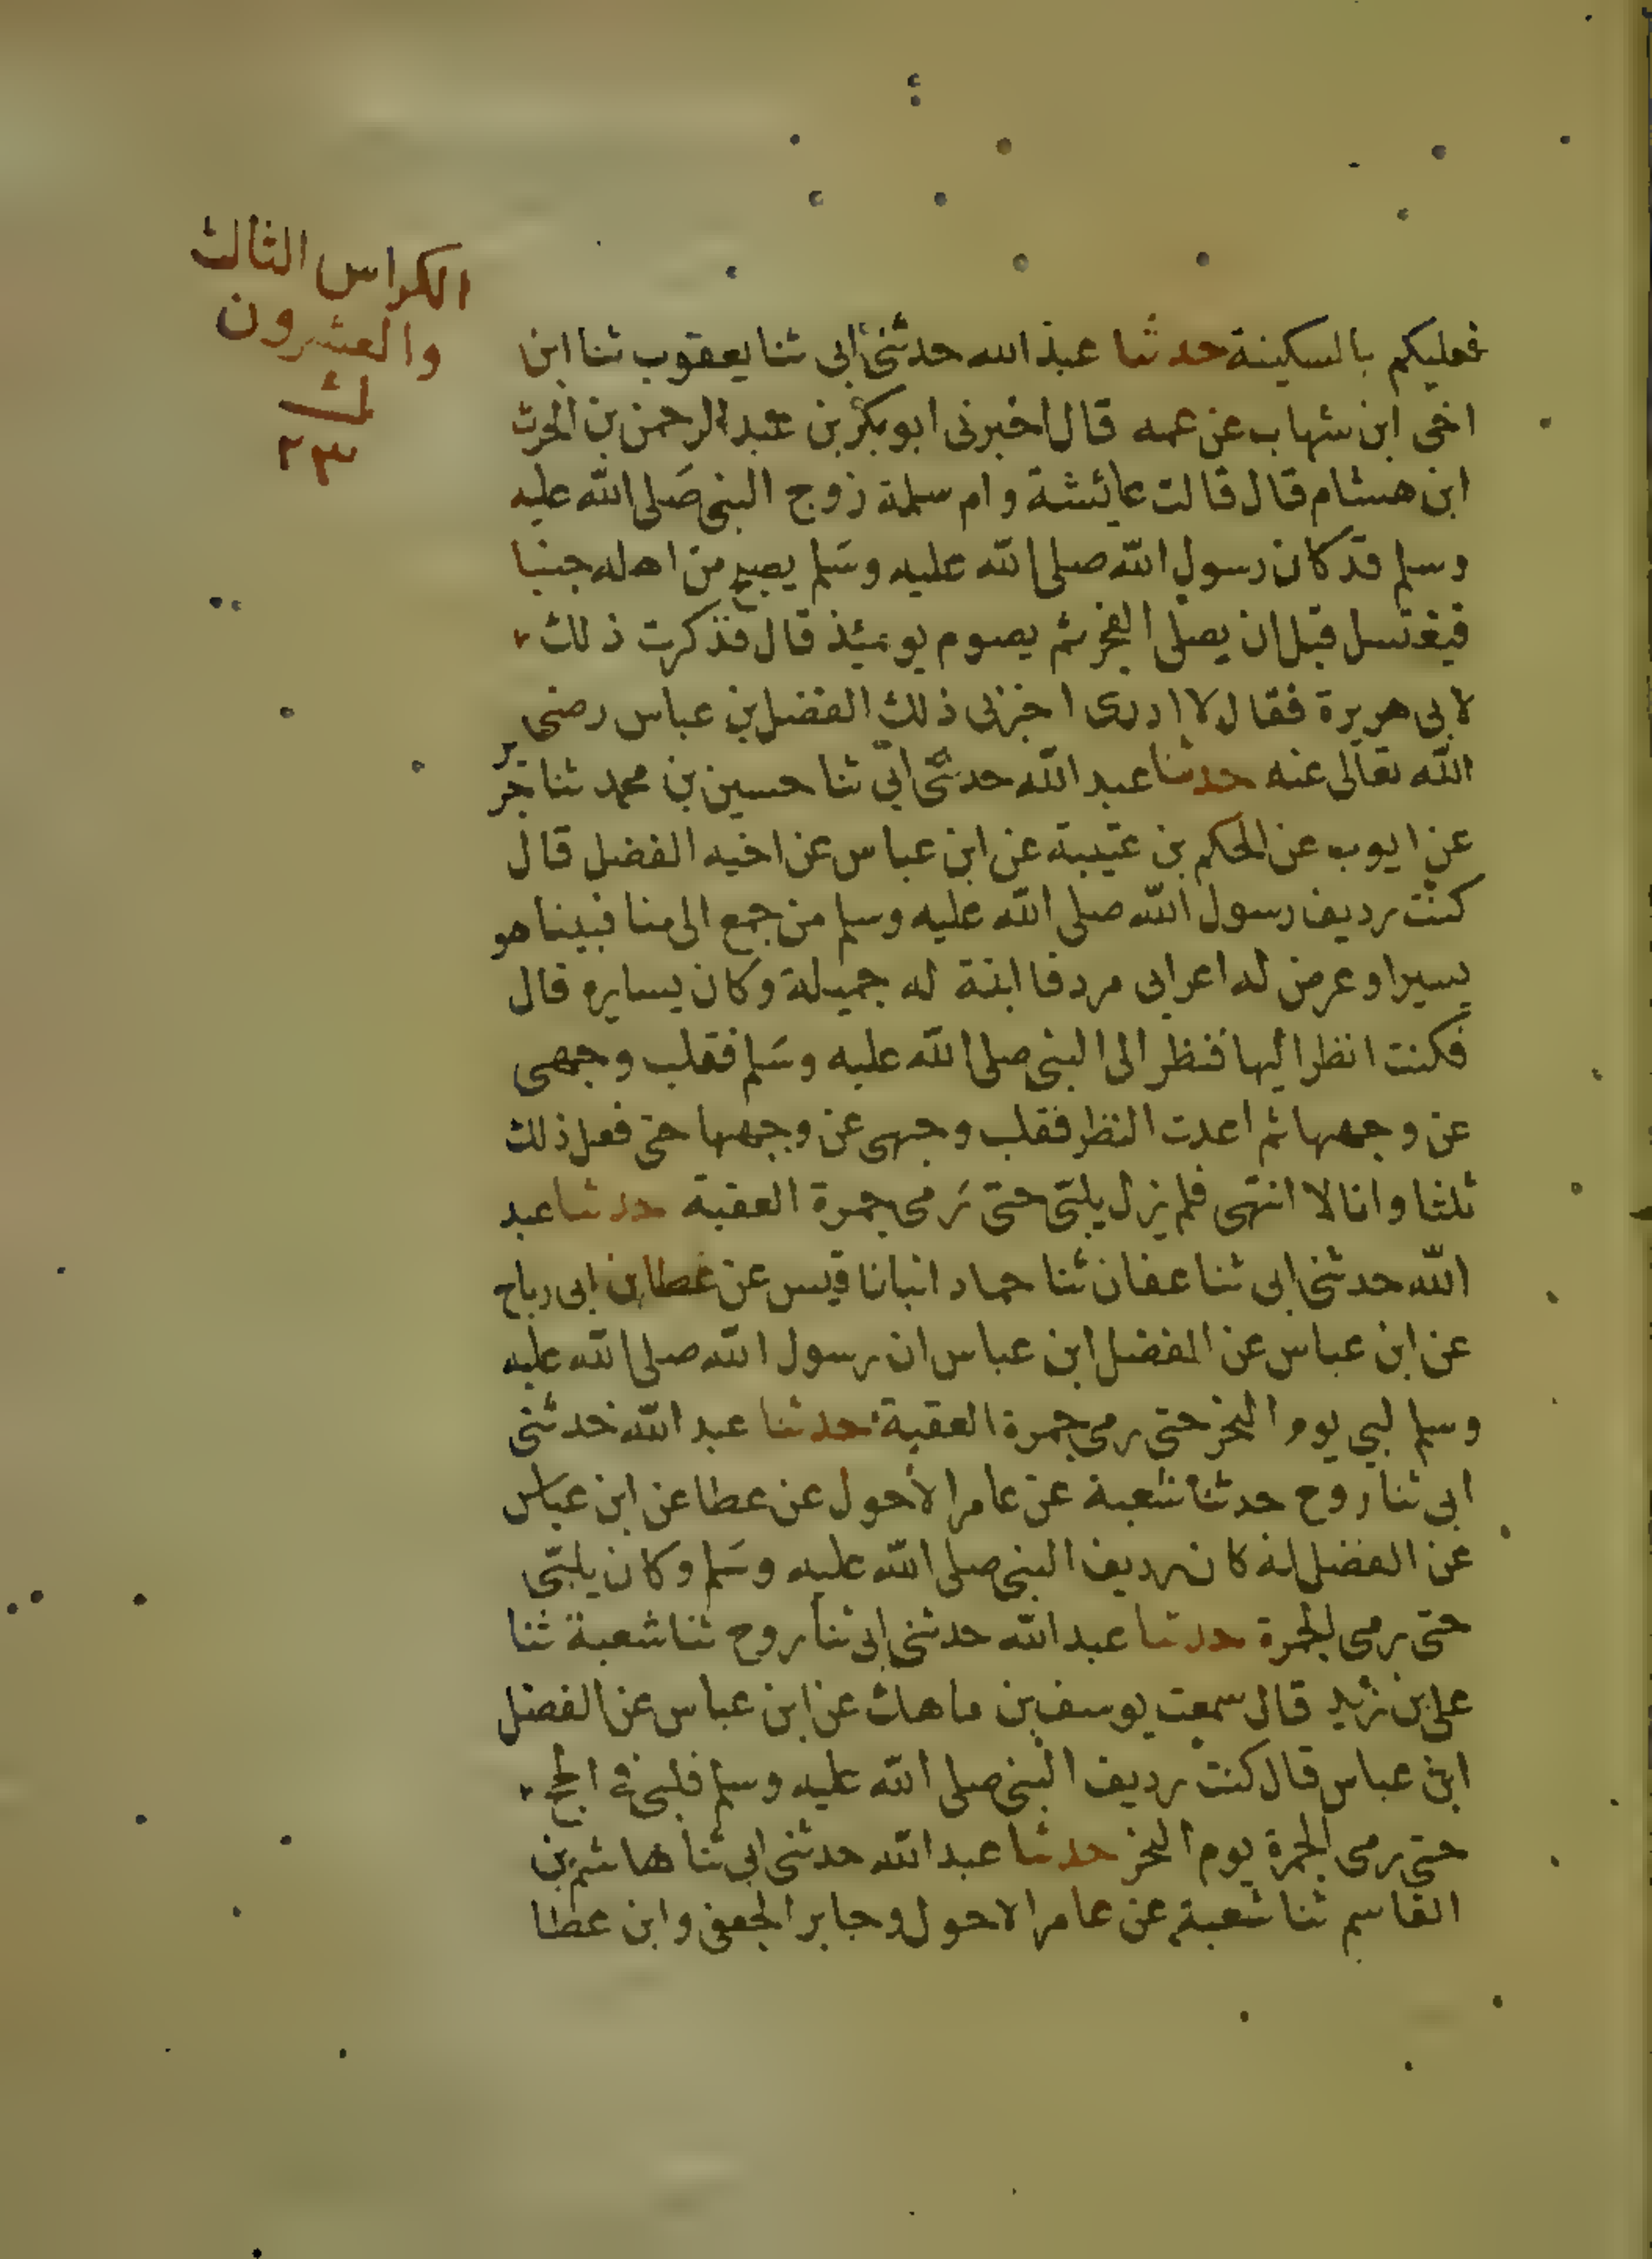 الكراس الثالث
والعشرون
ك
٢٣
فعليكم بالسكينة حدثنا عبد الله حدثنى ابى ثنا يعقوب ثنا ابن
اخى ابن شهاب عن عمه قال اخبرنى ابو بكر بن عبد الرحمن بن الحرث
ابن هشام قال قالت عائشة وام سلمة زوج النبى صلى الله عليه
وسلم قد كان رسول الله صلى الله عليه وسلم يصبح من اهله جنبا
فيغتسل قبل ان يصلى الفجر ثم يصوم يومئذ قال فذكرت ذلك
لابى هريرة فقال لا ادرى اخبرنى ذلك الفضل بن عباس رضى
الله تعالى عنه حدثنا عبد الله حدثنى ابى ثنا حسين بن محمد ثنا جرير
عن ايوب عن الحكم بن عتيبة عن ابن عباس عن اخيه الفضل قال
كنت رديف رسول الله صلى الله عليه وسلم من جمع الى منا فبينا هو
يسير او عرض له اعرابى مردفا ابنة له جميلة وكان يسايره قال
فكنت انظر اليها فنظر الى النبى صلى الله عليه وسلم فقلب وجهى
عن وجهها ثم اعدت النظر فقلب وجهى عن وجهها حتى فعل ذلك
ثلثا وانا لا انتهى فلم يزل يلبى حتى رمى جمرة العقبة حدثنا عبد
الله حدثنى ابى ثنا عفان ثنا حماد انبانا قيس عن عطا بن ابى رباح
عن ابن عباس عن الفضل ابن عباس ان رسول الله صلى الله عليه
وسلم لبي يوم النحر حتى رمى جمرة العقبة حدثنا عبد الله حدثنى
ابى ثنا روح حدثنا شعبة عن عامر الأحول عن عطا عن ابن عباس
عن الفضل انه كان رديف النبى صلى الله عليه وسلم وكان يلبى
حتى رمى الجمرة حدثنا عبد الله حدثنى ابى ثنا روح ثنا شعبة ثنا
على بن زيد قال سمعت يوسف بن ماهك عن ابن عباس عن الفضل
ابن عباس قال كنت رديف النبى صلى الله عليه وسلم فلبى فى الحج
حتى رمى الجمرة يوم النحر حدثنا عبد الله حدثنى ابى ثنا هاشم بن
القاسم ثنا شعبة عن عامر الاحول وجابر الجعفى وابن عطا